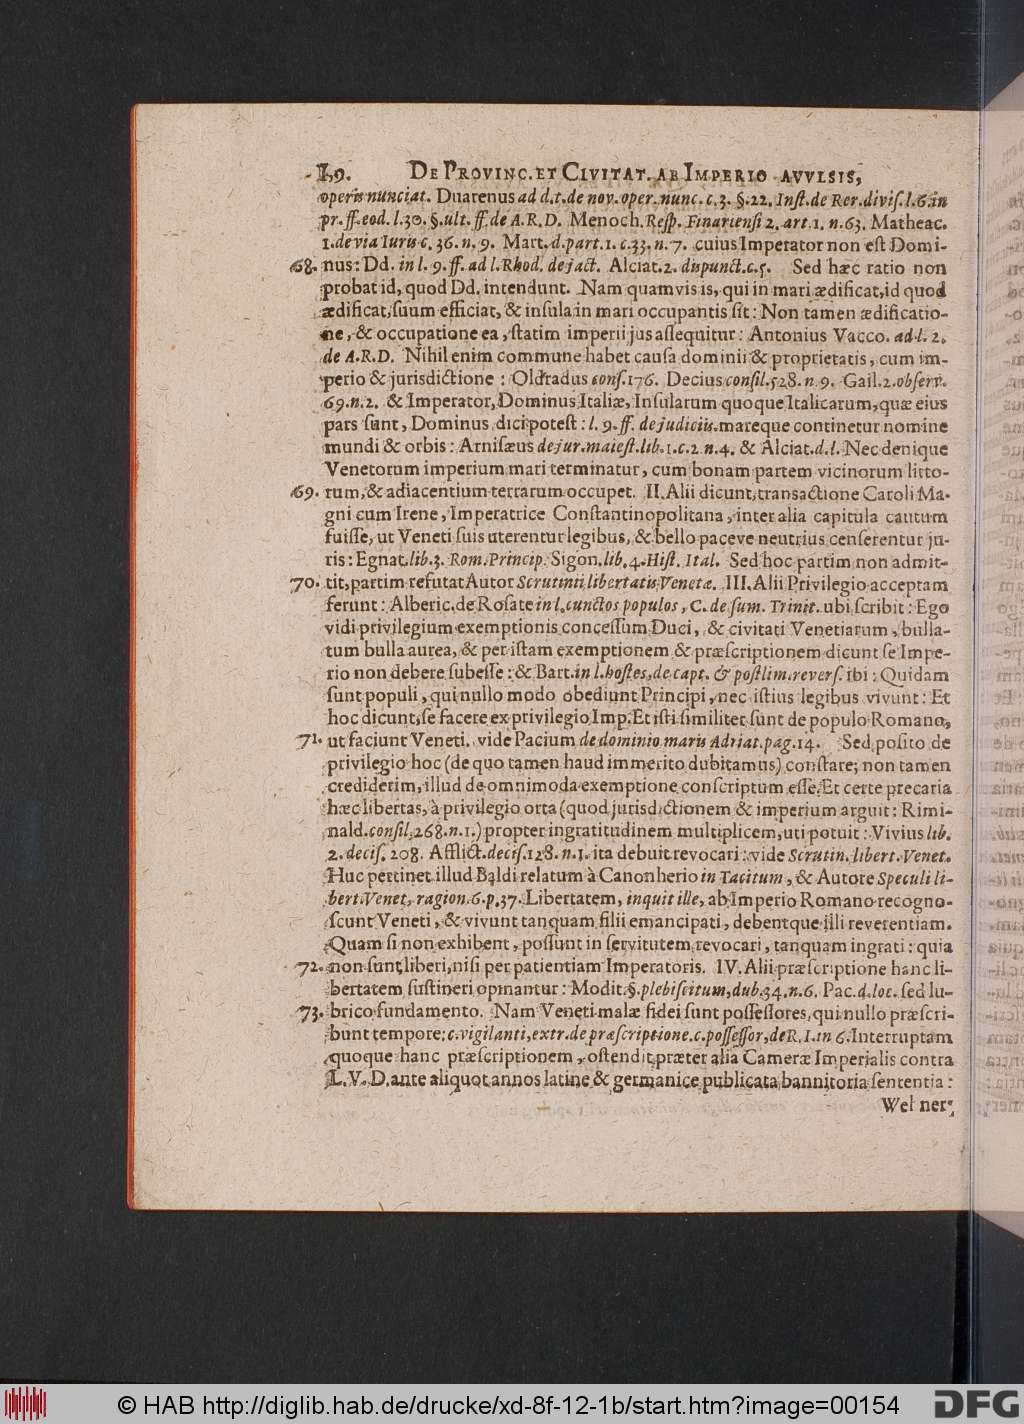 L9. DE PROVINC. ET CIVITAT. AB IMPERIO AVVLSIS,
operis nunciat. Duarenus ad d.t. de nov. oper. nunc. c.3. §.22. Inst. de Rer. divis. l.6. in
pr. ff. eod. l.30. §. ult. ff. de A.R.D. Menoch. Resp. Finariensi 2. art. 1. n. 63. Matheac.
1. de via Iuris c. 36. n. 9. Mart. d. part. 1. c. 33. n. 7. cuius Imperator non est Domi-
68. nus: Dd. in l. 9. ff. ad l. Rhod. de jact. Alciat. 2. dispunct. c. 5. Sed hæc ratio non
probat id, quod Dd. intendunt. Nam quamvis is, qui in mari ædificat, id quod
ædificat, suum efficiat, & insula in mari occupantis sit: Non tamen ædificatio-
ne, & occupatione ea, statim imperii jus assequitur: Antonius Vacco. ad l. 2.
de A.R.D. Nihil enim commune habet causa dominii & proprietatis, cum im-
perio & jurisdictione: Oldradus cons. 176. Decius consil. 528. n. 9. Gail. 2. observ.
69. n. 2. & Imperator, Dominus Italiæ, Insularum quoque Italicarum, quæ eius
pars sunt, Dominus dici potest: l. 9. ff. de judiciis. mareque continetur nomine
mundi & orbis: Arnisæus de jur. maiest. lib. 1. c. 2. n. 4. & Alciat. d. l. Nec denique
Venetorum imperium mari terminatur, cum bonam partem vicinorum litto-
69. rum, & adiacentium terrarum occupet. II. Alii dicunt, transactione Caroli Ma-
gni cum Irene, Imperatrice Constantinopolitana, inter alia capitula cautum
fuisse, ut Veneti suis uterentur legibus, & bello paceve neutrius censerentur ju-
ris: Egnat. lib. 3. Rom. Princip. Sigon. lib. 4. Hist. Ital. Sed hoc partim non admit-
70. tit, partim refutat Autor Scrutinii libertatis Venetæ. III. Alii Privilegio acceptam
ferunt: Alberic. de Rosate in l. cunctos populos, C. de sum. Trinit. ubi scribit: Ego
vidi privilegium exemptionis concessum Duci, & civitati Venetiarum, bulla-
tum bulla aurea, & per istam exemptionem & præscriptionem dicunt se Impe-
rio non debere subesse: & Bart. in l. hostes, de capt. & postlim. revers. ibi: Quidam
sunt populi, qui nullo modo obediunt Principi, nec istius legibus vivunt: Et
hoc dicunt, se facere ex privilegio Imp. Et isti similiter sunt de populo Romano,
71. ut faciunt Veneti. vide Pacium de dominio maris Adriat. pag. 14. Sed posito de
privilegio hoc (de quo tamen haud immerito dubitamus) constare; non tamen
crediderim, illud de omnimoda exemptione conscriptum esse. Et certe precaria
hæc libertas, à privilegio orta (quod jurisdictionem & imperium arguit: Rimi-
nald. consil. 268. n. 1.) propter ingratitudinem multiplicem, uti potuit: Vivius lib.
2. decis. 208. Afflict. decis. 128. n. 1. ita debuit revocari: vide Scrutin. libert. Venet.
Huc pertinet illud Baldi relatum à Canonherio in Tacitum, & Autore Speculi li-
bert. Venet. ragion. 6. p. 37. Libertatem, inquit ille, ab Imperio Romano recogno-
scunt Veneti, & vivunt tanquam filii emancipati, debentque illi reverentiam.
Quam si non exhibent, possunt in servitutem revocari, tanquam ingrati: quia
72. non sunt liberi, nisi per patientiam Imperatoris. IV. Alii præscriptione hanc li-
bertatem sustineri opinantur: Modit. §. plebiscitum, dub. 34. n. 6. Pac. d. loc. sed lu-
73. brico fundamento. Nam Veneti malæ fidei sunt possessores, qui nullo præscri-
bunt tempore: c. vigilanti, extr. de præscriptione. c. possessor, de R. I. in 6. Interruptam
quoque hanc præscriptionem, ostendit præter alia Cameræ Imperialis contra
L. V. D. ante aliquot annos latine & germanice publicata bannitoria sententia:
Wehner
© HAB http://diglib.hab.de/drucke/xd-8f-12-1b/start.htm?image=00154
DFG